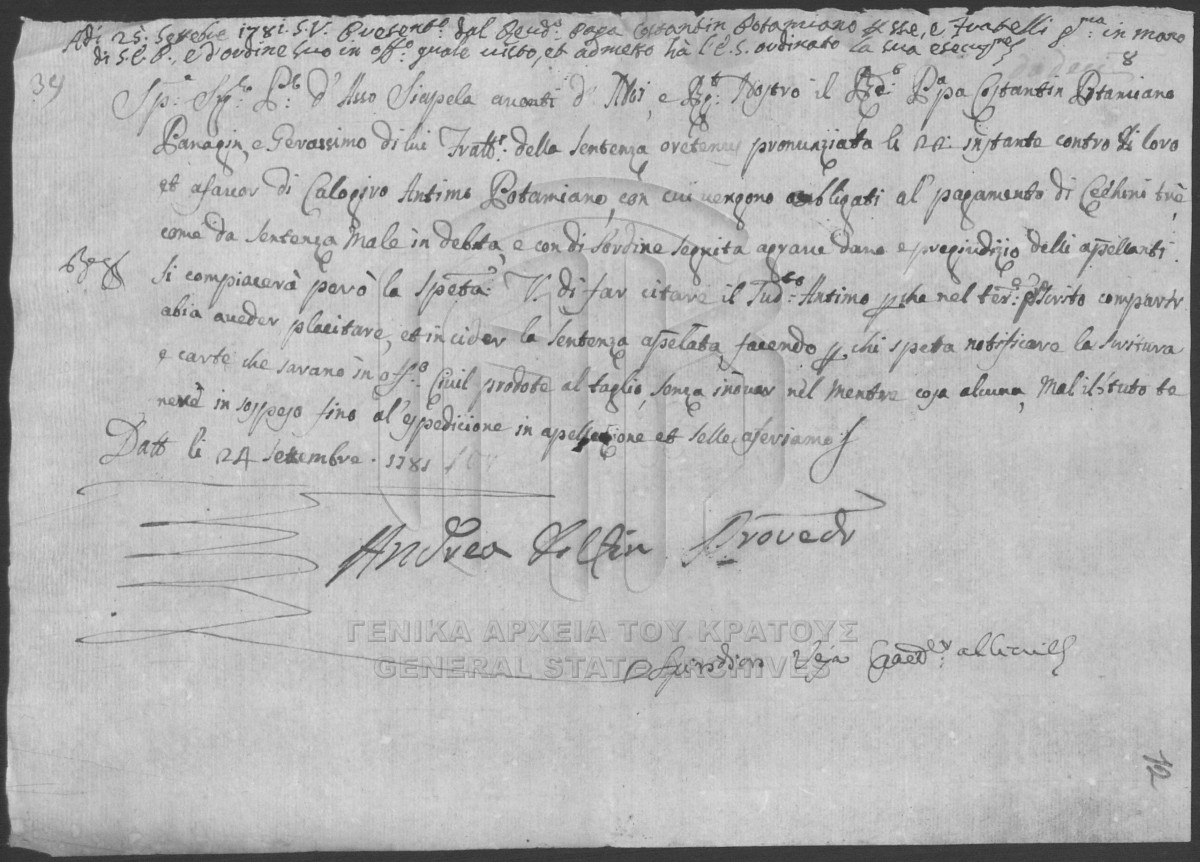 Adi 25. Settebre 1781. S.V. Presentº dal Revdº Papa Costantin Potamiano p sse, e Fratelli in mano
di S.E.P. e d'ordine suo in offº quale visto, et admesso hà l'E.S. ordinato la sua esecuzne
34
8
d'Asso Siapela avanti d' Noi, e Nostro il Rdo Ppa Costantin Potamiano
Panagin, e Gerassimo di lui Fratti della sentenza oretenus pronunziata li 22 instante contro di loro
et a favor di Calogiro Antimo Potamiano, con cui vengono obbligati al pagamento di Cechini tre,
come da sentenza Male in debita, e con di sordine seguita a grave dano e pregiudizio delli apellanti.
Si compiacerà però la Spetà V. di far citare il Sudto Antimo p che nel terº pscrito comparir
abia a veder placitare, et incider la sentenza apelata, facendo p chi speta notificare la scritura
e carte che sarano in offº Civil prodote al taglio, senza inovar nel mentre cosa alcuna, Mal' il tuto te
nerè in sospeso fino al' espedicione in apellacione et selle aferiamo
Datt li 24 Setembre 1781 S.V.
Andrea Provedr
ΓΕΝΙΚΑ ΑΡΧΕΙΑ ΤΟΥ ΚΡΑΤΟΥΣ
GENERAL STATE ARCHIVES
Spiridion
12